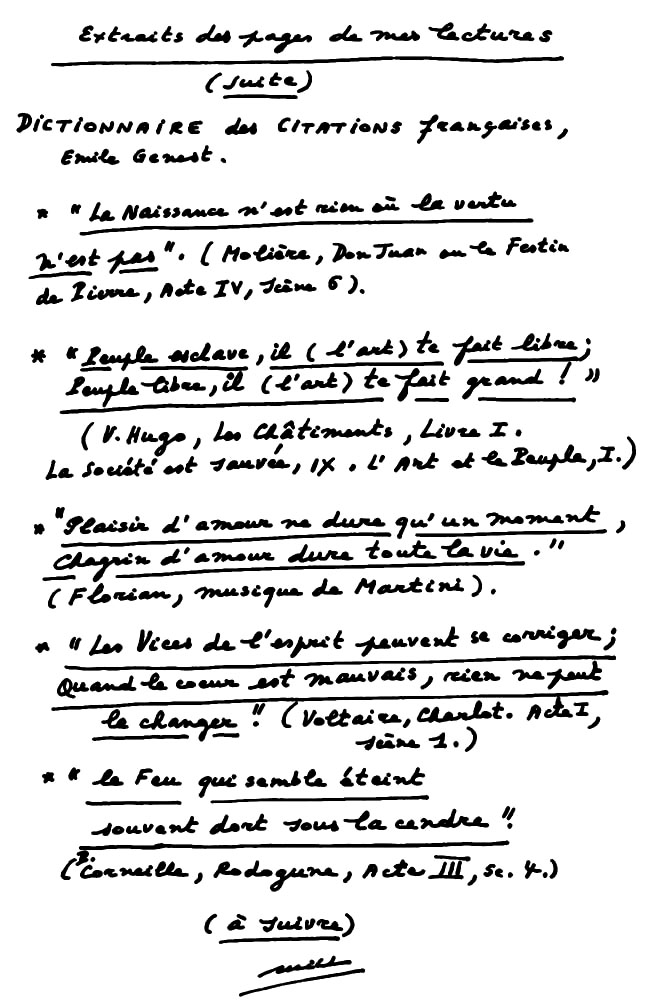 Extraits des pages de mes lectures
(suite)
DICTIONNAIRE des CITATIONS françaises,
Emile Genest.
* "La Naissance n'est rien où la vertu
n'est pas". (Molière, Don Juan ou le Festin
de Pierre, Acte IV, Scène 6).
* "Peuple esclave, il (l'art) te fait libre;
Peuple libre, il (l'art) te fait grand ! "
(V. Hugo, Les Châtiments, Livre I.
La Société est sauvée, IX. L'Art et le Peuple, I.)
* "Plaisir d'amour ne dure qu'un moment,
Chagrin d'amour dure toute la vie."
(Florian, musique de Martini).
* "Les Vices de l'esprit peuvent se corriger;
Quand le coeur est mauvais, rien ne peut
le changer". (Voltaire, Charlot. Acte I,
scène 1.)
* "le Feu qui semble éteint
souvent dort sous la cendre".
(P. Corneille, Rodogune, Acte III, Sc. 4.)
(à suivre)